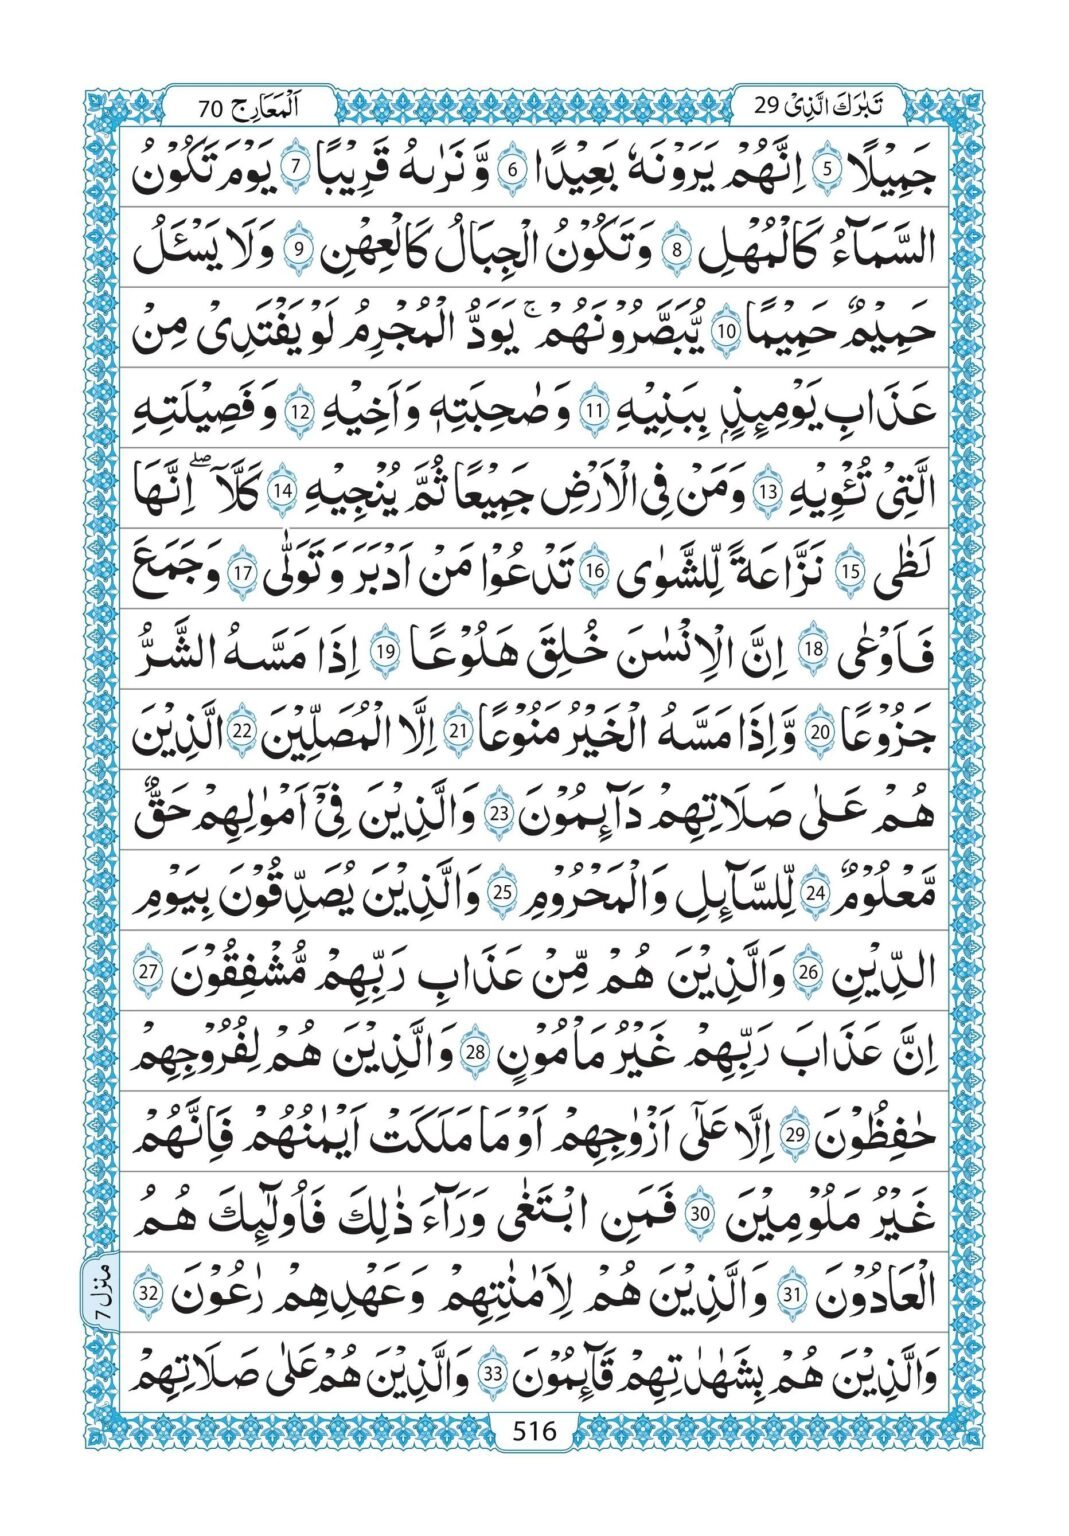 تَبٰرَكَ الَّذِىْ 29
اَلْمَعَارِج 70
جَمِيْلًا 5 اِنَّهُمْ يَرَوْنَهٗ بَعِيْدًا 6 وَّ نَرٰىهُ قَرِيْبًا 7 يَوْمَ تَكُوْنُ
السَّمَآءُ كَالْمُهْلِ 8 وَتَكُوْنُ الْجِبَالُ كَالْعِهْنِ 9 وَلَا يَسْـَٔلُ
حَمِيْمٌ حَمِيْمًا 10 يُّبَصَّرُوْنَهُمْ ۚ يَوَدُّ الْمُجْرِمُ لَوْ يَفْتَدِىْ مِنْ
عَذَابِ يَوْمِئِذٍۭ بِبَنِيْهِ 11 وَصٰحِبَتِهٖ وَاَخِيْهِ 12 وَفَصِيْلَتِهِ
الَّتِىْ تُـْٔوِيْهِ 13 وَمَنْ فِى الْاَرْضِ جَمِيْعًا ثُمَّ يُنْجِيْهِ 14 كَلَّآ ۖ اِنَّهَا
لَظٰى 15 نَزَّاعَةً لِّلشَّوٰى 16 تَدْعُوْا مَنْ اَدْبَرَ وَتَوَلّٰى 17 وَجَمَعَ
فَاَوْعٰى 18 اِنَّ الْاِنْسٰنَ خُلِقَ هَلُوْعًا 19 اِذَا مَسَّهُ الشَّرُّ
جَزُوْعًا 20 وَّاِذَا مَسَّهُ الْخَيْرُ مَنُوْعًا 21 اِلَّا الْمُصَلِّيْنَ 22 الَّذِيْنَ
هُمْ عَلٰى صَلَاتِهِمْ دَآئِمُوْنَ 23 وَالَّذِيْنَ فِىْٓ اَمْوٰلِهِمْ حَقٌّ
مَّعْلُوْمٌ 24 لِّلسَّآئِلِ وَالْمَحْرُوْمِ 25 وَالَّذِيْنَ يُصَدِّقُوْنَ بِيَوْمِ
الدِّيْنِ 26 وَالَّذِيْنَ هُمْ مِّنْ عَذَابِ رَبِّهِمْ مُّشْفِقُوْنَ 27
اِنَّ عَذَابَ رَبِّهِمْ غَيْرُ مَاْمُوْنٍ 28 وَالَّذِيْنَ هُمْ لِفُرُوْجِهِمْ
حٰفِظُوْنَ 29 اِلَّا عَلٰٓى اَزْوٰجِهِمْ اَوْ مَا مَلَكَتْ اَيْمٰنُهُمْ فَاِنَّهُمْ
غَيْرُ مَلُوْمِيْنَ 30 فَمَنِ ابْتَغٰى وَرَآءَ ذٰلِكَ فَاُولٰٓئِكَ هُمُ
الْعَادُوْنَ 31 وَالَّذِيْنَ هُمْ لِاَمٰنٰتِهِمْ وَعَهْدِهِمْ رٰعُوْنَ 32
منزل 7
وَالَّذِيْنَ هُمْ بِشَهٰدٰتِهِمْ قَآئِمُوْنَ 33 وَالَّذِيْنَ هُمْ عَلٰى صَلَاتِهِمْ
516